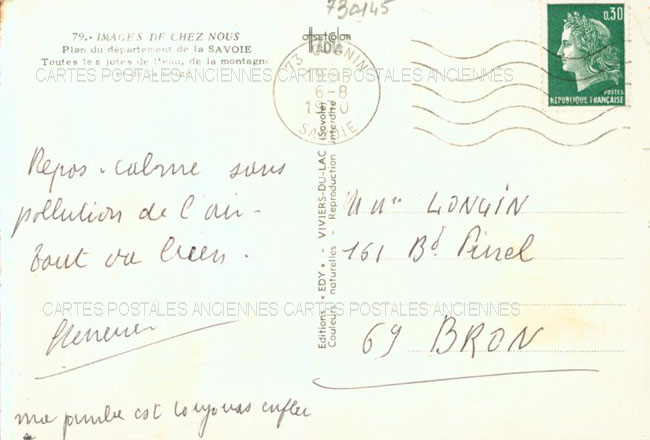 730145
79.- IMAGES DE CHEZ NOUS
Plan du département de la SAVOIE
Toutes les joies de l'eau, de la montagne
CARTES POSTALES ANCIENNES CARTES POSTALES ANCIENNES
OFFSET COLOR
73 GNIN
19 30
6-8
1970
SAVOIE
0,30
POSTES
REPUBLIQUE FRANÇAISE
Repos. calme sans
pollution de l'air-
Tout va bien.
ma jambe est toujours enflée
Editions « EDY » - VIVIERS-DU-LAC (Savoie)
Couleurs naturelles - Reproduction interdite
LONGIN
161 Bd Pinel
69 BRON
CARTES POSTALES ANCIENNES CARTES POSTALES ANCIENNES